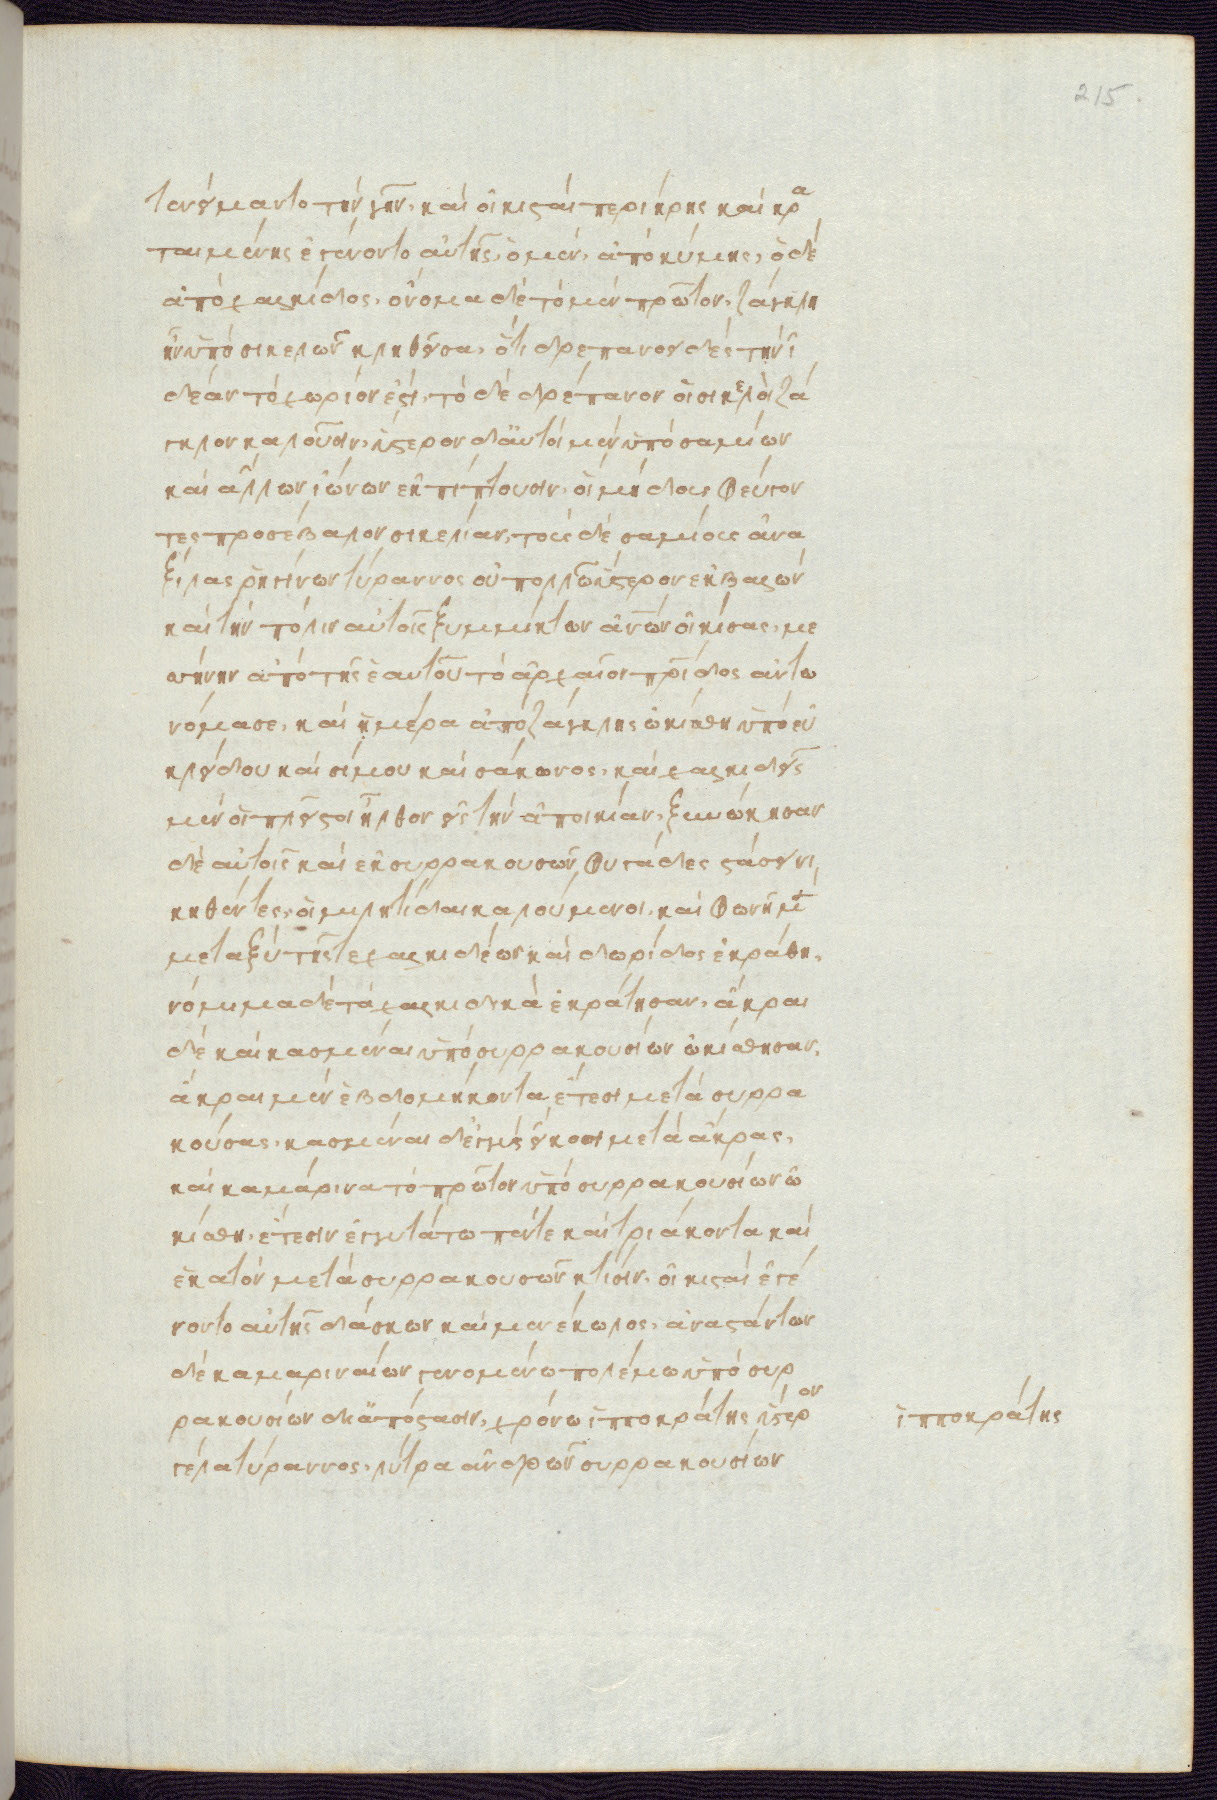 τενείμαντο τὴν γῆν, καὶ οἰκισταὶ περιήρης καὶ κρα
ταιμένης ἐγένοντο αὐτῆς, ὁ μὲν, ἀπὸ κύμης, ὁ δὲ
ἀπὸ χαλκίδος, ὄνομα δὲ τὸ μὲν πρῶτον, ζάγκλη
ἦν ὑπὸ σικελῶν κληθεῖσα, ὅτι δρεπανοειδὲς τὴν ἰ
δέαν τὸ χωρίον ἐστί, τὸ δὲ δρέπανον οἱ σικελοὶ ζά
γκλον καλοῦσιν, ὕστερον δ' αὐτοὶ μὲν ὑπὸ σαμίων
καὶ ἄλλων ἰώνων ἐκπίπτουσιν, οἳ μήδους φεύγον
τες προσέβαλον σικελίαν, τοὺς δὲ σαμίους ἀνα
ξίλας ῥηγίνων τύραννος οὐ πολλῶ ὕστερον ἐκβαλὼν
καὶ τὴν πόλιν αὐτοῖς ξυμμίκτων ἀνων οἰκίσας, με
σήνην ἀπὸ τῆς ἑαυτοῦ τὸ ἀρχαῖον πρίδος ἀντω
νόμασε, καὶ ἡμέρα ἀπὸ ζάγκλης ὠκίσθη ὑπὸ εὐ
κλείδου καὶ σίμου καὶ σάκωνος, καὶ χαλκιδεῖς
μὲν οἱ πλεῖστοι ἦλθον εἰς τὴν ἀποικίαν, ξυνώκησαν
δὲ αὐτοῖς καὶ ἐκ συρρακουσῶν φυγάδες στάσει νι
κηθέντες, οἱ μυλητίδαι καλούμενοι, καὶ φωνὴ μὲν
μεταξὺ τῆς τε χαλκιδέων καὶ δωρίδος ἐκράθη,
νόμιμα δὲ τὰ χαλκιδικὰ ἐκράτησαν, ἄκραι
δὲ καὶ κασμέναι ὑπὸ συρρακουσίων ὠκίσθησαν,
ἄκραι μὲν ἑβδομήκοντα ἔτεσι μετὰ συρρα
κούσας, κασμέναι δ' ἐγγὺς εἴκοσι μετὰ ἄκρας,
καὶ καμάρινα τὸ πρῶτον ὑπὸ συρρακουσίων ὠ
κίσθη, ἔτεσιν ἐγγυτάτω πέντε καὶ τριάκοντα καὶ
ἑκατὸν μετὰ συρρακουσῶν κτίσιν, οἰκισταὶ ἐγέ
νοντο αὐτῆς δάσκων καὶ μενέκωλος, ἀναστάντων
δὲ καμαριναίων γενομένω πολέμω ὑπὸ συρ
ρακουσίων δι' ἀπόστασιν, χρόνω ἱπποκράτης ὕστερον
γέλα τύραννος, λύτρα ἀνδρῶν συρρακουσίων
ἱπποκράτης
215